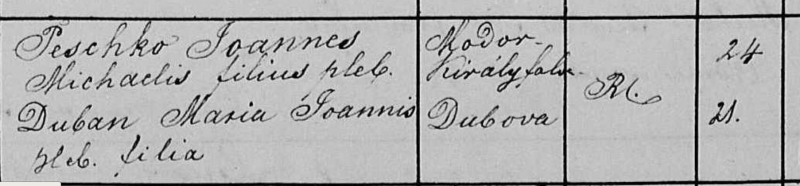 Peschko Joannes Modor- 24
Michaelis filius pleb. Királyfalva Rc.
Duban Maria Joannis Dubova 21.
pleb. filia